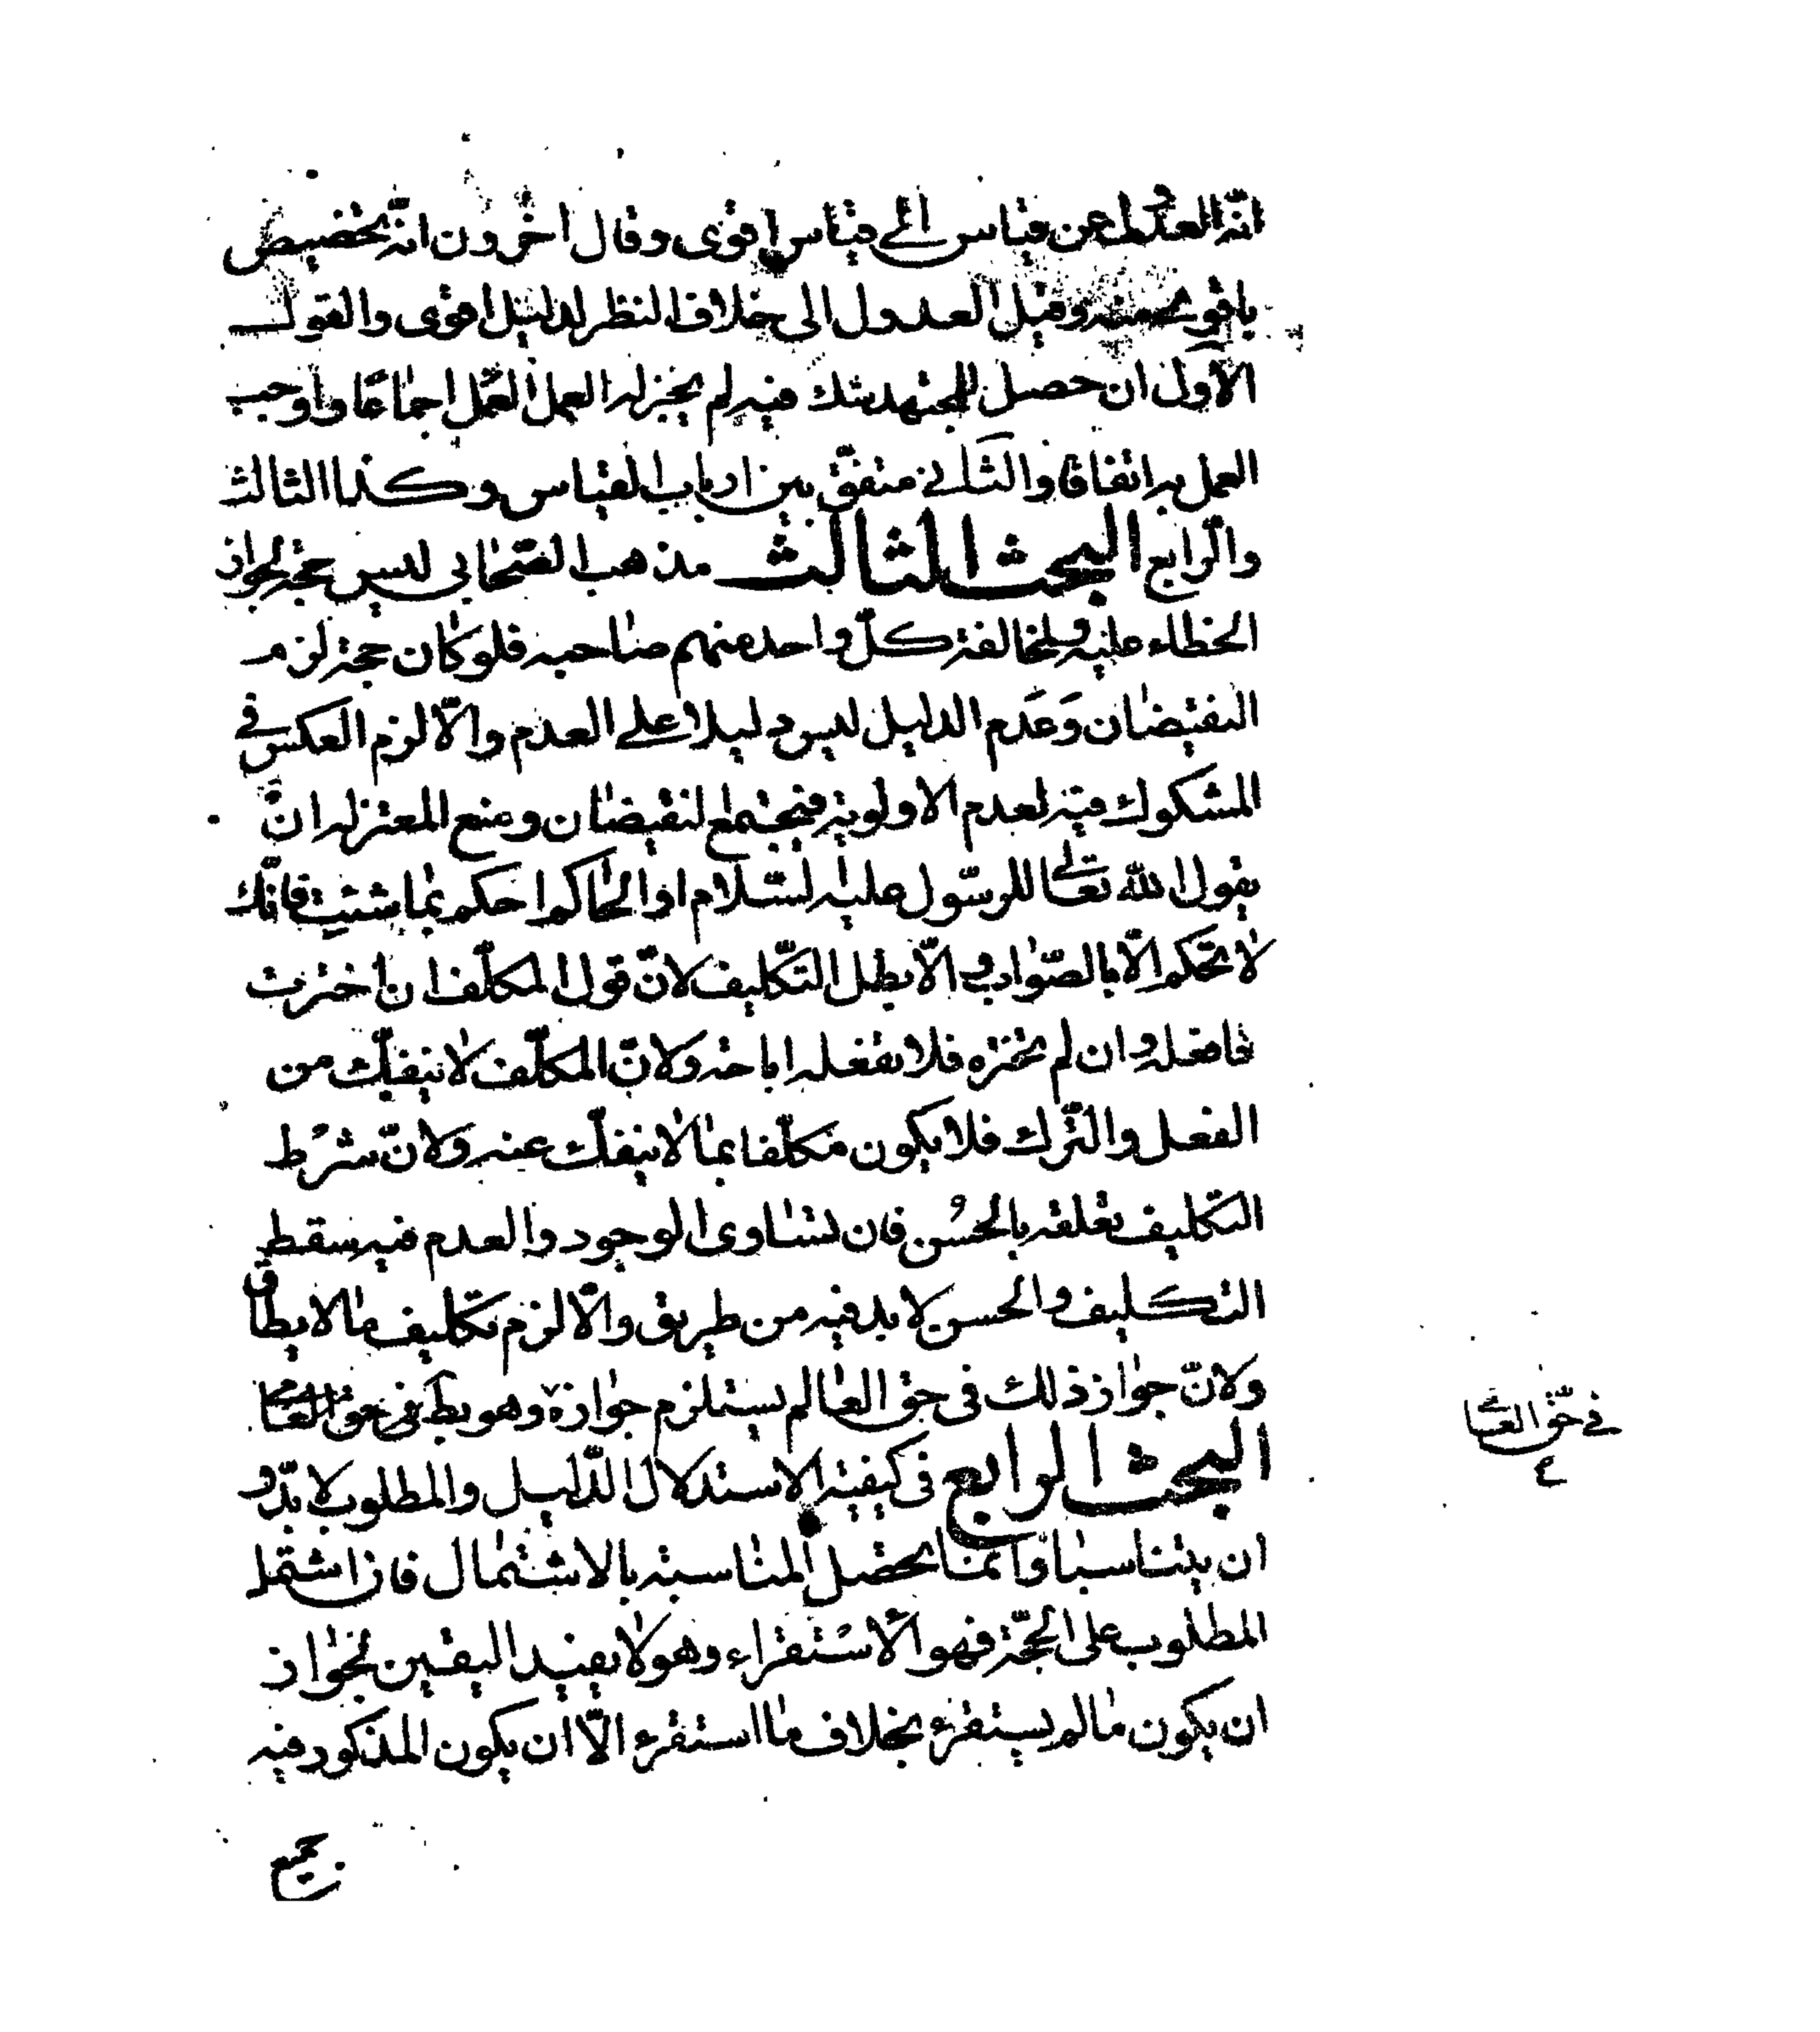 انّه العدول عن قياس الى قياس اقوى وقال اخرون انّه تخصيص
باقوى منه وقيل العدول الى خلاف النظر لدليل اقوى والقول
الاوّل ان حصل للمجتهد شك فيه لم يجز له العمل العمل اجماعًا واوجب
العمل به اتفاقا والثانى متفق بين ارباب القياس وكذا الثالث
والرّابع البحث الثالث مذهب الصّحابى ليس حجة لجواز
الخطاء عليه ولمخالفة كلّ واحد منهم صاحبه فلو كان حجة لزم
النقيضان وعَدم الدليل ليس دليلا على العدم والّا لزم العكس فى
المشكوك فيه لعدم الاولوية فيجتمع النقيضان ومنع المعتزله انّ
يقول الله تعالى للرسّول عليه السّلام او الحاكم احكم بما شئت فانّك
لا تحكم الّا بالصّواب والّا بطل التّكليف لانّ قول المكلّف ان اخترت
فافعله وان لم تختره فلا تفعله اباحة ولانّ المكلّف لا ينفكّ من
الفعل والتّرك فلا يكون مكلّفا بما لا ينفكّ عنه ولانّ شرُط
التكليف تعلقه بالحسُن فان تساوى الوجود والعدم فيه سقط
التكليف والحسن لا بد فيه من طريق والّا لزم تكليف ما لا يطاق
ولانّ جواز ذلك فى حق العالم يستلزم جوازه وهو بط فى حق العامى
فى حقّ العامى
البحث الرابع فى كيفية الاستدلال الدّليل والمطلوب لا بدّ و
ان يتناسبا وانما يحصل المناسبة بالاشتمال فان اشتمل
المطلوب على الحجّة فهو الاستقراء وهو لا يفيد اليقين لجواز
ان يكون ما لم يستقرء بخلاف ما استقرء الّا ان يكون المذكور فيه
جميع